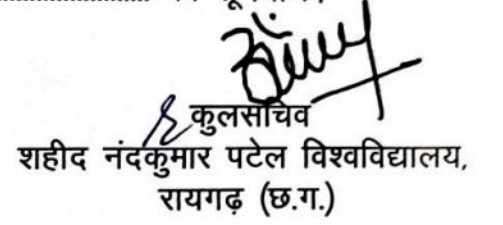 कुलसचिव
शहीद नंदकुमार पटेल विश्वविद्यालय,
रायगढ़ (छ.ग.)